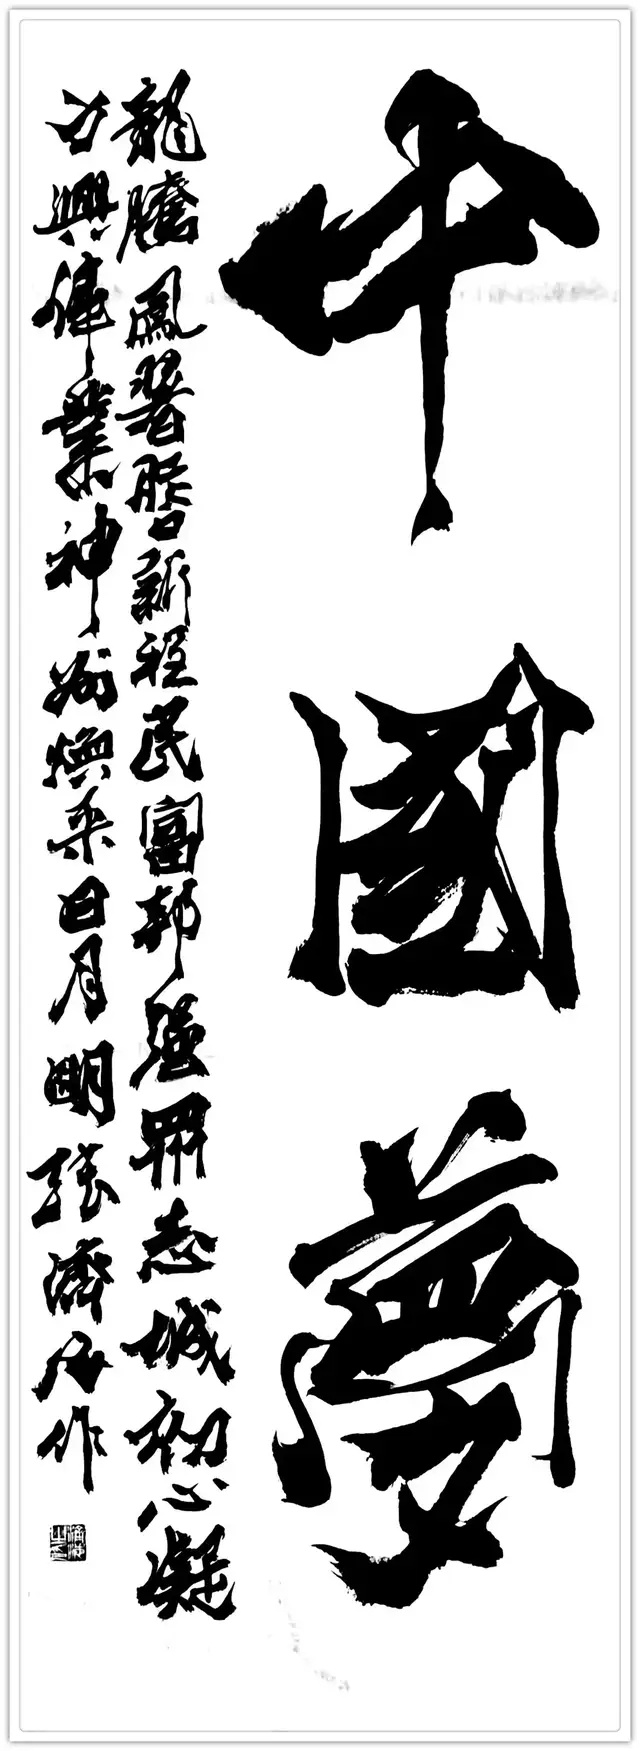 中國夢
龍騰鳳翥踏新程民富邦強眾志城初心凝
力興偉業神州煥采日月明張濟海作